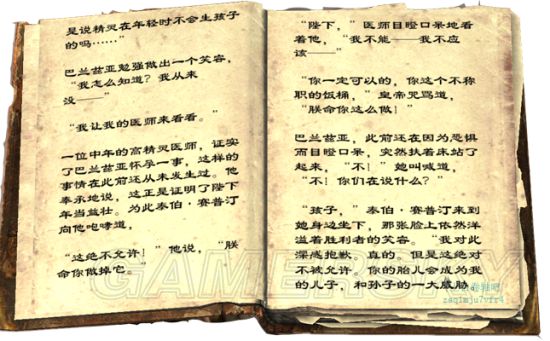 是说精灵在年轻时不会生孩子
的吗……”
巴兰兹亚勉强做出一个笑容，
“我怎么知道？我从来
没——”
“我让我的医师来看看。”
一位中年的高精灵医师，证实
了巴兰兹亚怀孕一事，这样的
事情在此前还从未发生过。他
奉承地说，这正是证明了陛下
年当益壮。为此泰伯·赛普汀
向他咆哮道，
“这绝不允许！”他说，“朕
命你做掉它。”
“陛下，”医师目瞪口呆地看
着他，“我不能——我不应
该——”
“你一定可以的，你这个不称
职的饭桶，”皇帝咒骂道，
“朕命你这么做！”
巴兰兹亚，此前还在因为恐惧
而目瞪口呆，突然扶着床站了
起来，“不！”她叫喊道，
“不！你们在说什么？”
“孩子，”泰伯·赛普汀来到
她身边坐下，那张脸上依然洋
溢着胜利者的笑容。“我对此
深感抱歉，真的。但是这绝对
不被允许。你的胎儿会成为我
的儿子，和孙子的一大威胁
GAMERSKY
zaq1mju7vfr4